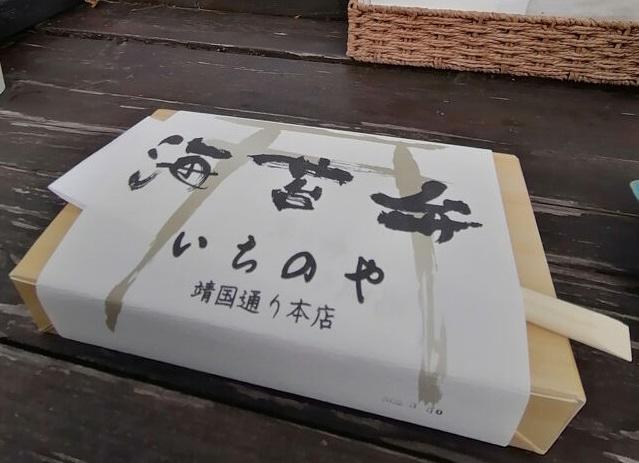 海苔弁
いちのや
靖国通り本店